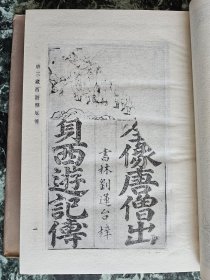 全像唐僧出
書林劉蓮台梓
身西遊記傳
唐三藏西遊釋厄傳
一